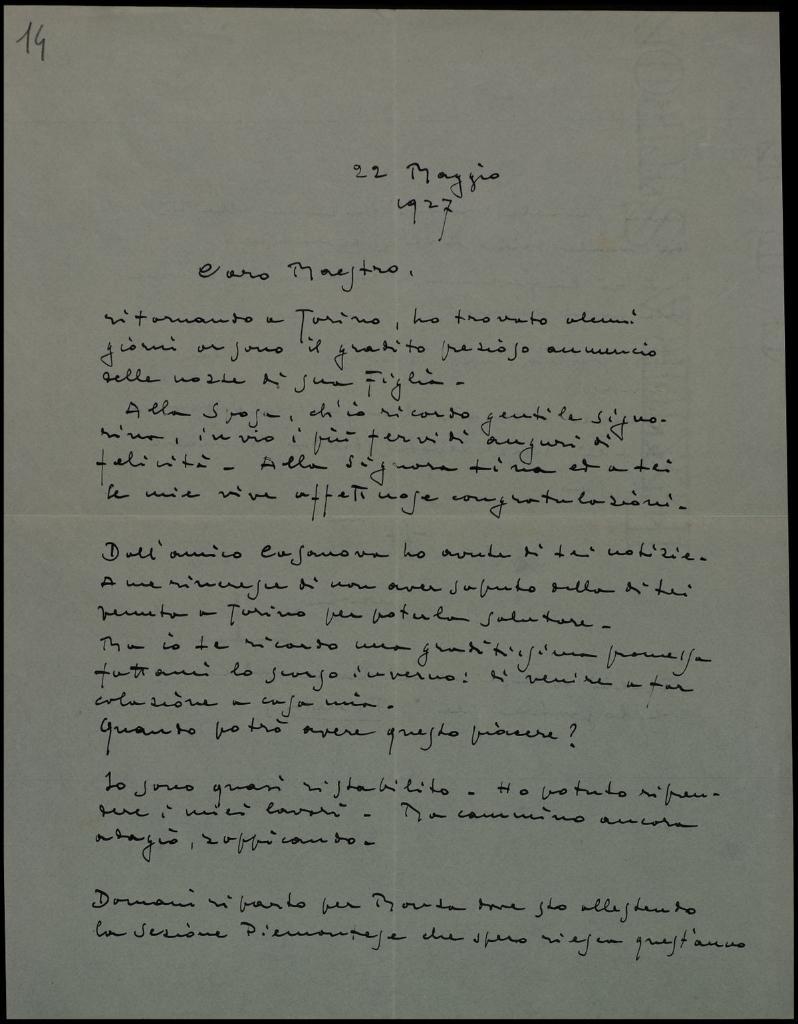 14
22 Maggio
1927
Caro Maestro,
ritornando a Torino, ho trovato alcuni
giorni or sono il gradito prezioso annuncio
delle nozze di sua Figlia -
Alla Sposa, ch'io ricordo gentile signo-
rina, invio i più fervidi auguri di
felicità - Alla Signora Lina ed a Lei
le mie vive affettuose congratulazioni -
Dall'amico Casanova ho avute di Lei notizie -
A me rincresce di non aver saputo della di Lei
venuta a Torino per poterla salutare -
Ma io Le ricordo una graditissima promessa
fattami lo scorso inverno: di venire a far
colazione a casa mia -
Quando potrò avere questo piacere?
Io sono quasi ristabilito - Ho potuto ripren-
dere i miei lavori - Ma cammino ancora
adagio, zoppicando -
Domani riparto per Monza dove sto allestendo
la Sezione Piemontese che spero riesca quest'anno